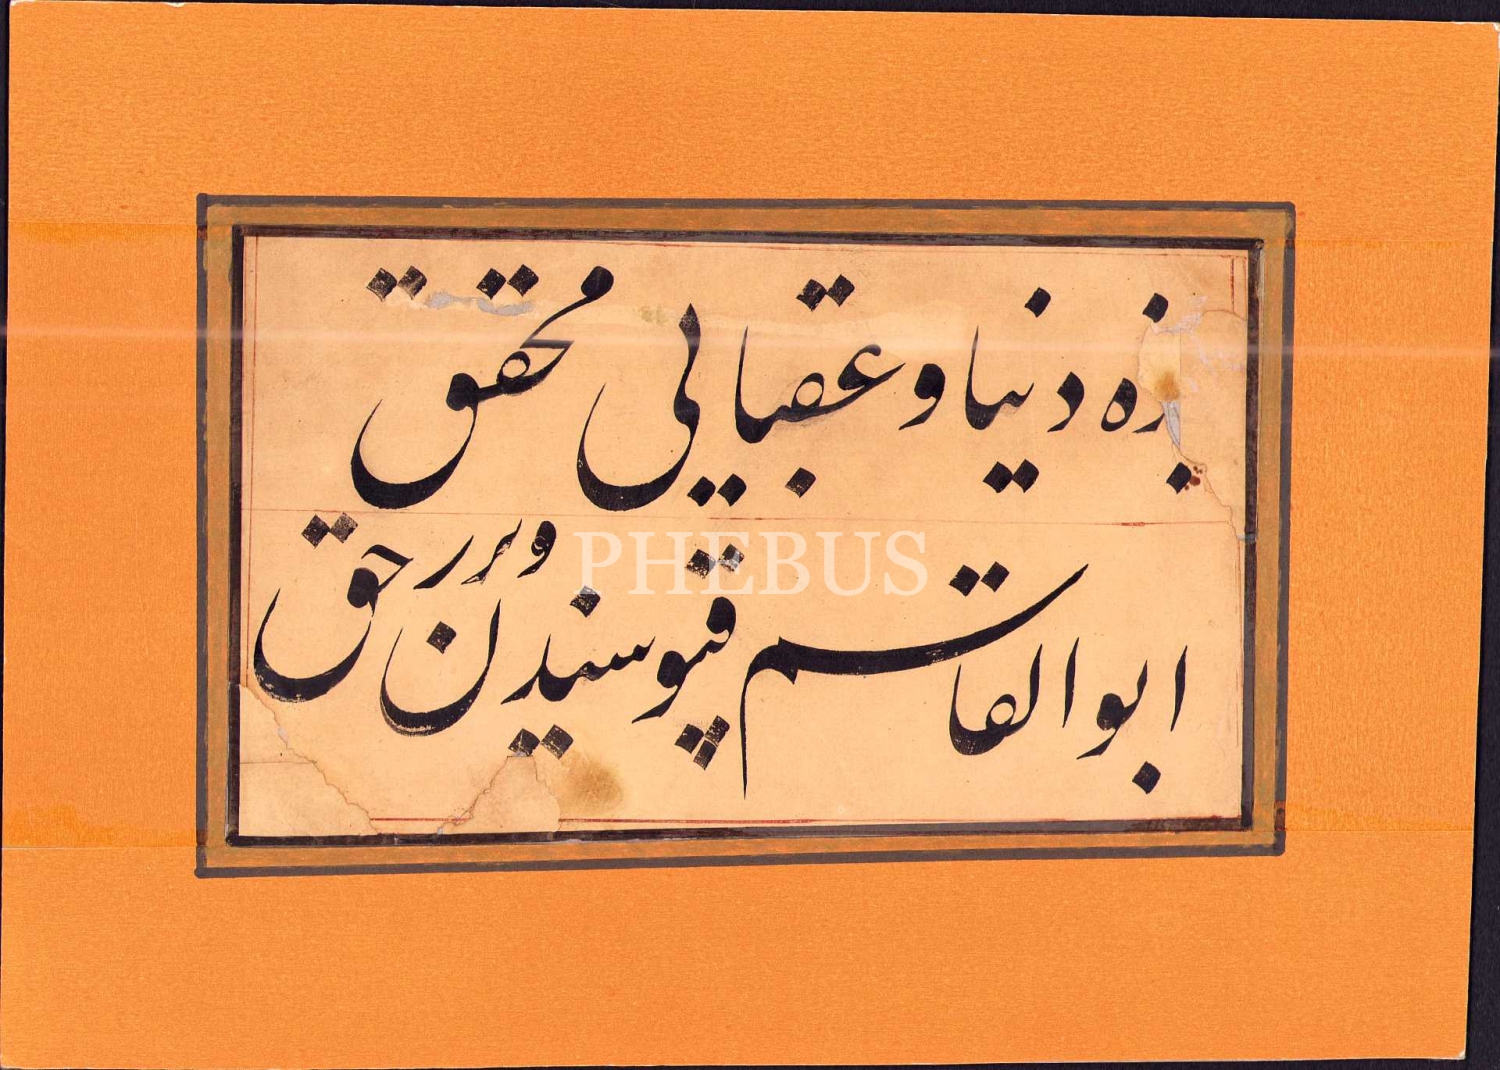 بزه دنیا و عقبایی محقق
PHEBUS
ابو القاسم قپوسیندن ویرر حق